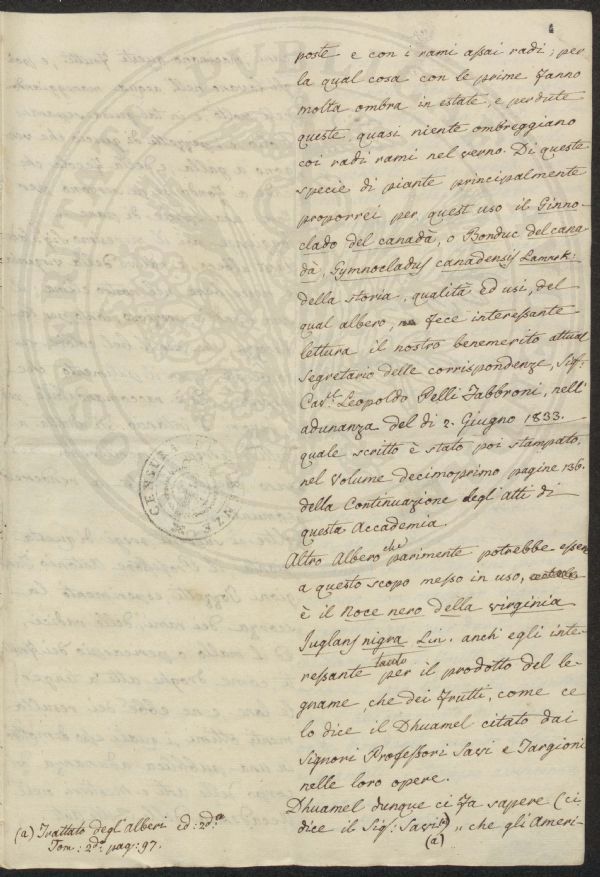 poste e con i rami assai radi; per
la qual cosa con le prime fanno
molta ombra in estate, e perdute
queste, quasi niente ombreggiano
coi radi rami nel verno. Di queste
specie di piante principalmente
proporrei per quest'uso il Ginno-
clado del canadà, o Bonduc del cana-
dà, Gymnocladus canadensis Lamrk:
della storia, qualità ed usi, del
qual albero, fece interessante
lettura il nostro benemerito attual
segretario delle corrispondenze, Sig:
Cav: Leopoldo Pelli Fabbroni, nell'
adunanza del dì 2. Giugno 1833.
quale scritto è stato poi stampato
nel Volume decimoprimo pagine 136.
della Continuazione degl'atti di
questa Accademia.
Altro Albero che parimente potrebbe esser
a questo scopo messo in uso,
è il Noce nero della virginia
Juglans nigra Lin. anch'egli inte-
ressante tanto per il prodotto del le-
gname, che dei frutti, come ce
lo dice il Dhuamel citato dai
Signori Professori Savi e Targioni
nelle loro opere.
Dhuamel dunque ci fa sapere (ci
dice il Sig: Savi) (a) „ che gli Ameri-
(a) Trattato degl'Alberi Ed: 2da
Tom: 2do pag: 97.